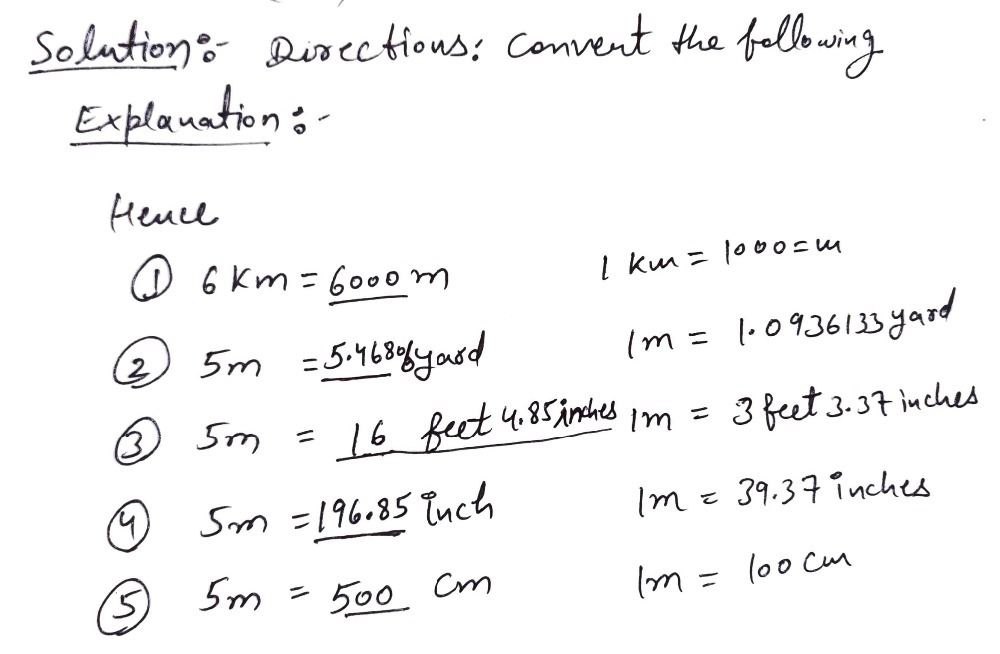 Solution:- Directions: Convert the following
Explanation:-
Hence
① 6 Km = 6000 m 1 km = 1000 = m
② 5m = 5.46806 yard 1m = 1.0936133 yard
③ 5m = 16 feet 4.85 inches 1m = 3 feet 3.37 inches
④ 5m = 196.85 inch 1m = 39.37 inches
⑤ 5m = 500 cm 1m = 100 cm